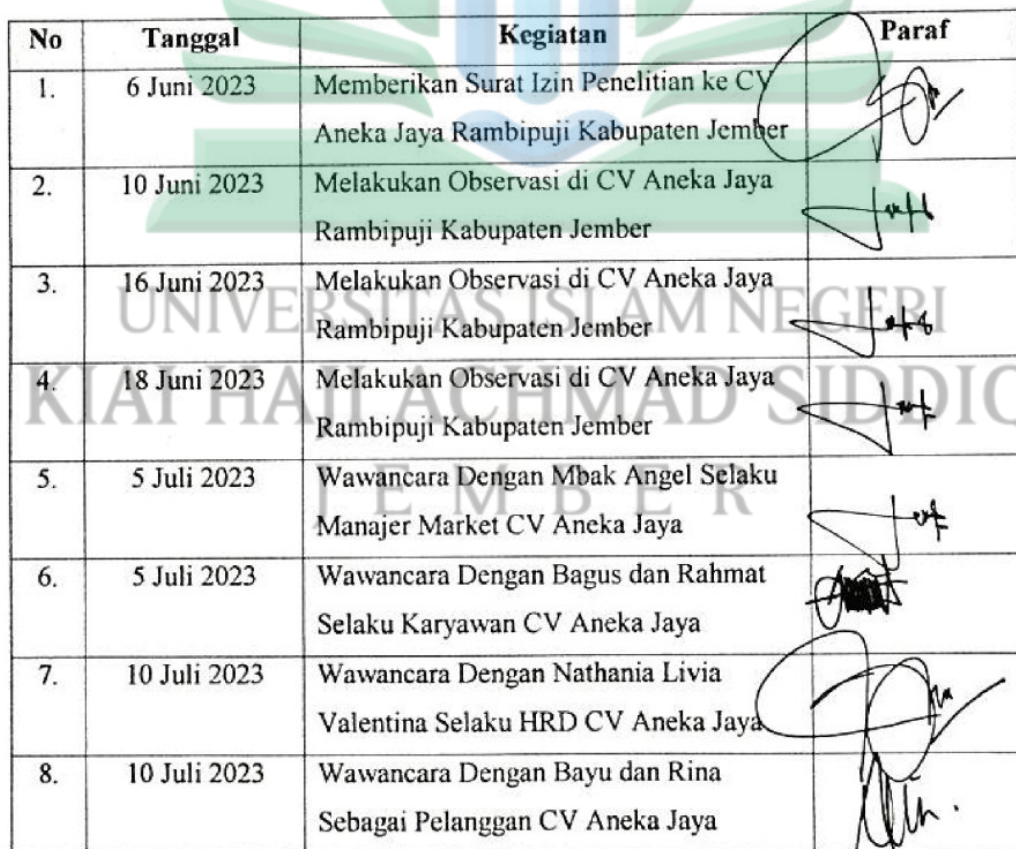 No Tanggal Kegiatan Paraf
1. 6 Juni 2023 Memberikan Surat Izin Penelitian ke CV
Aneka Jaya Rambipuji Kabupaten Jember
2. 10 Juni 2023 Melakukan Observasi di CV Aneka Jaya
Rambipuji Kabupaten Jember
3. 16 Juni 2023 Melakukan Observasi di CV Aneka Jaya
UNIVERSITAS ISLAM NEGERI
Rambipuji Kabupaten Jember
4. 18 Juni 2023 Melakukan Observasi di CV Aneka Jaya
KIAI HAJI ACHMAD SIDDIQ
Rambipuji Kabupaten Jember
5. 5 Juli 2023 Wawancara Dengan Mbak Angel Selaku
JEMBER
Manajer Market CV Aneka Jaya
6. 5 Juli 2023 Wawancara Dengan Bagus dan Rahmat
Selaku Karyawan CV Aneka Jaya
7. 10 Juli 2023 Wawancara Dengan Nathania Livia
Valentina Selaku HRD CV Aneka Jaya
8. 10 Juli 2023 Wawancara Dengan Bayu dan Rina
Sebagai Pelanggan CV Aneka Jaya